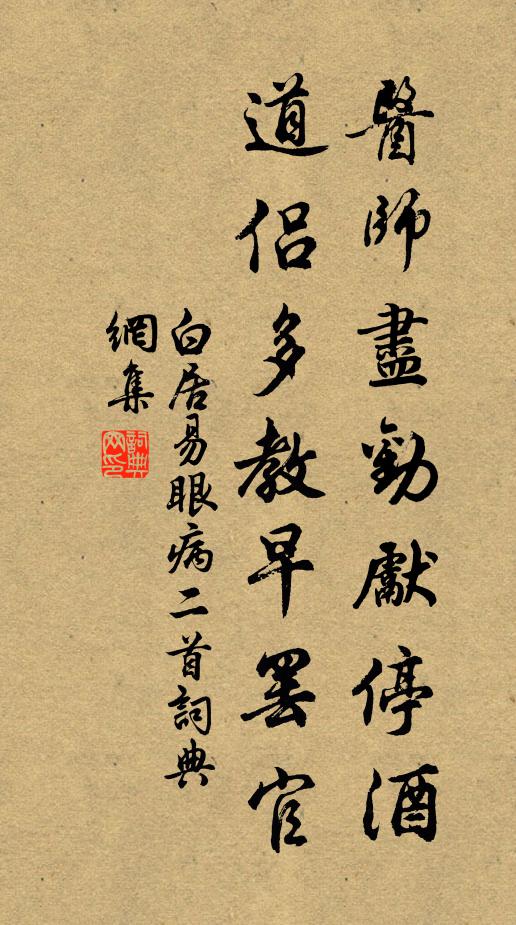 醫師盡勸獻停酒
道侶多教早罷官
白居易眼病二首詞典
網集
詞典
网印